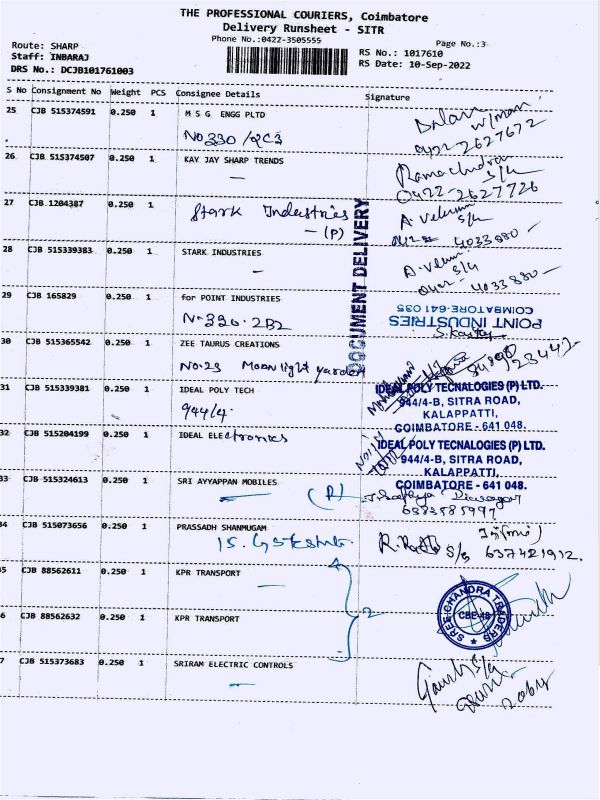 THE PROFESSIONAL COURIERS, Coimbatore
Delivery Runsheet - SITR
Phone No.:0422-3505555
Page No.:3
Route: SHARP
Staff: INBARAJ
DRS No.: DCJB101761003
RS No.: 1017610
RS Date: 10-Sep-2022
S No Consignment No Weight PCS Consignee Details Signature
25 CJB 515374591 0.250 1 M S G ENGG PLTD
No 330/2C3
0422 2627672
26 CJB 515374507 0.250 1 KAY JAY SHARP TRENDS
Ramachandra
0422-2627726
27 CJB 1204387 0.250 1 Stark Industries
- (P)
4033880
28 CJB 515339383 0.250 1 STARK INDUSTRIES
4033880
DOCUMENT DELIVERY
29 CJB 165829 0.250 1 for POINT INDUSTRIES
No 330.2B2
POINT INDUSTRIES
COIMBATORE-641 035
30 CJB 515365542 0.250 1 ZEE TAURUS CREATIONS
No.23 Moonlight garden
31 CJB 515339381 0.250 1 IDEAL POLY TECH
944/4
IDEAL POLY TECNALOGIES (P) LTD.
944/4-B, SITRA ROAD,
KALAPPATTI,
COIMBATORE - 641 048.
32 CJB 515204199 0.250 1 IDEAL ELEctronics
IDEAL POLY TECNALOGIES (P) LTD.
944/4-B, SITRA ROAD,
KALAPPATTI,
COIMBATORE - 641 048.
33 CJB 515324613 0.250 1 SRI AYYAPPAN MOBILES
(P)
6383585997
34 CJB 515073656 0.250 1 PRASSADH SHANMUGAM
637421912.
5 CJB 88562611 0.250 1 KPR TRANSPORT
2
6 CJB 88562632 0.250 1 KPR TRANSPORT
SREE CHANDRA TRADERS
CBE-48
7 CJB 515373683 0.250 1 SRIRAM ELECTRIC CONTROLS